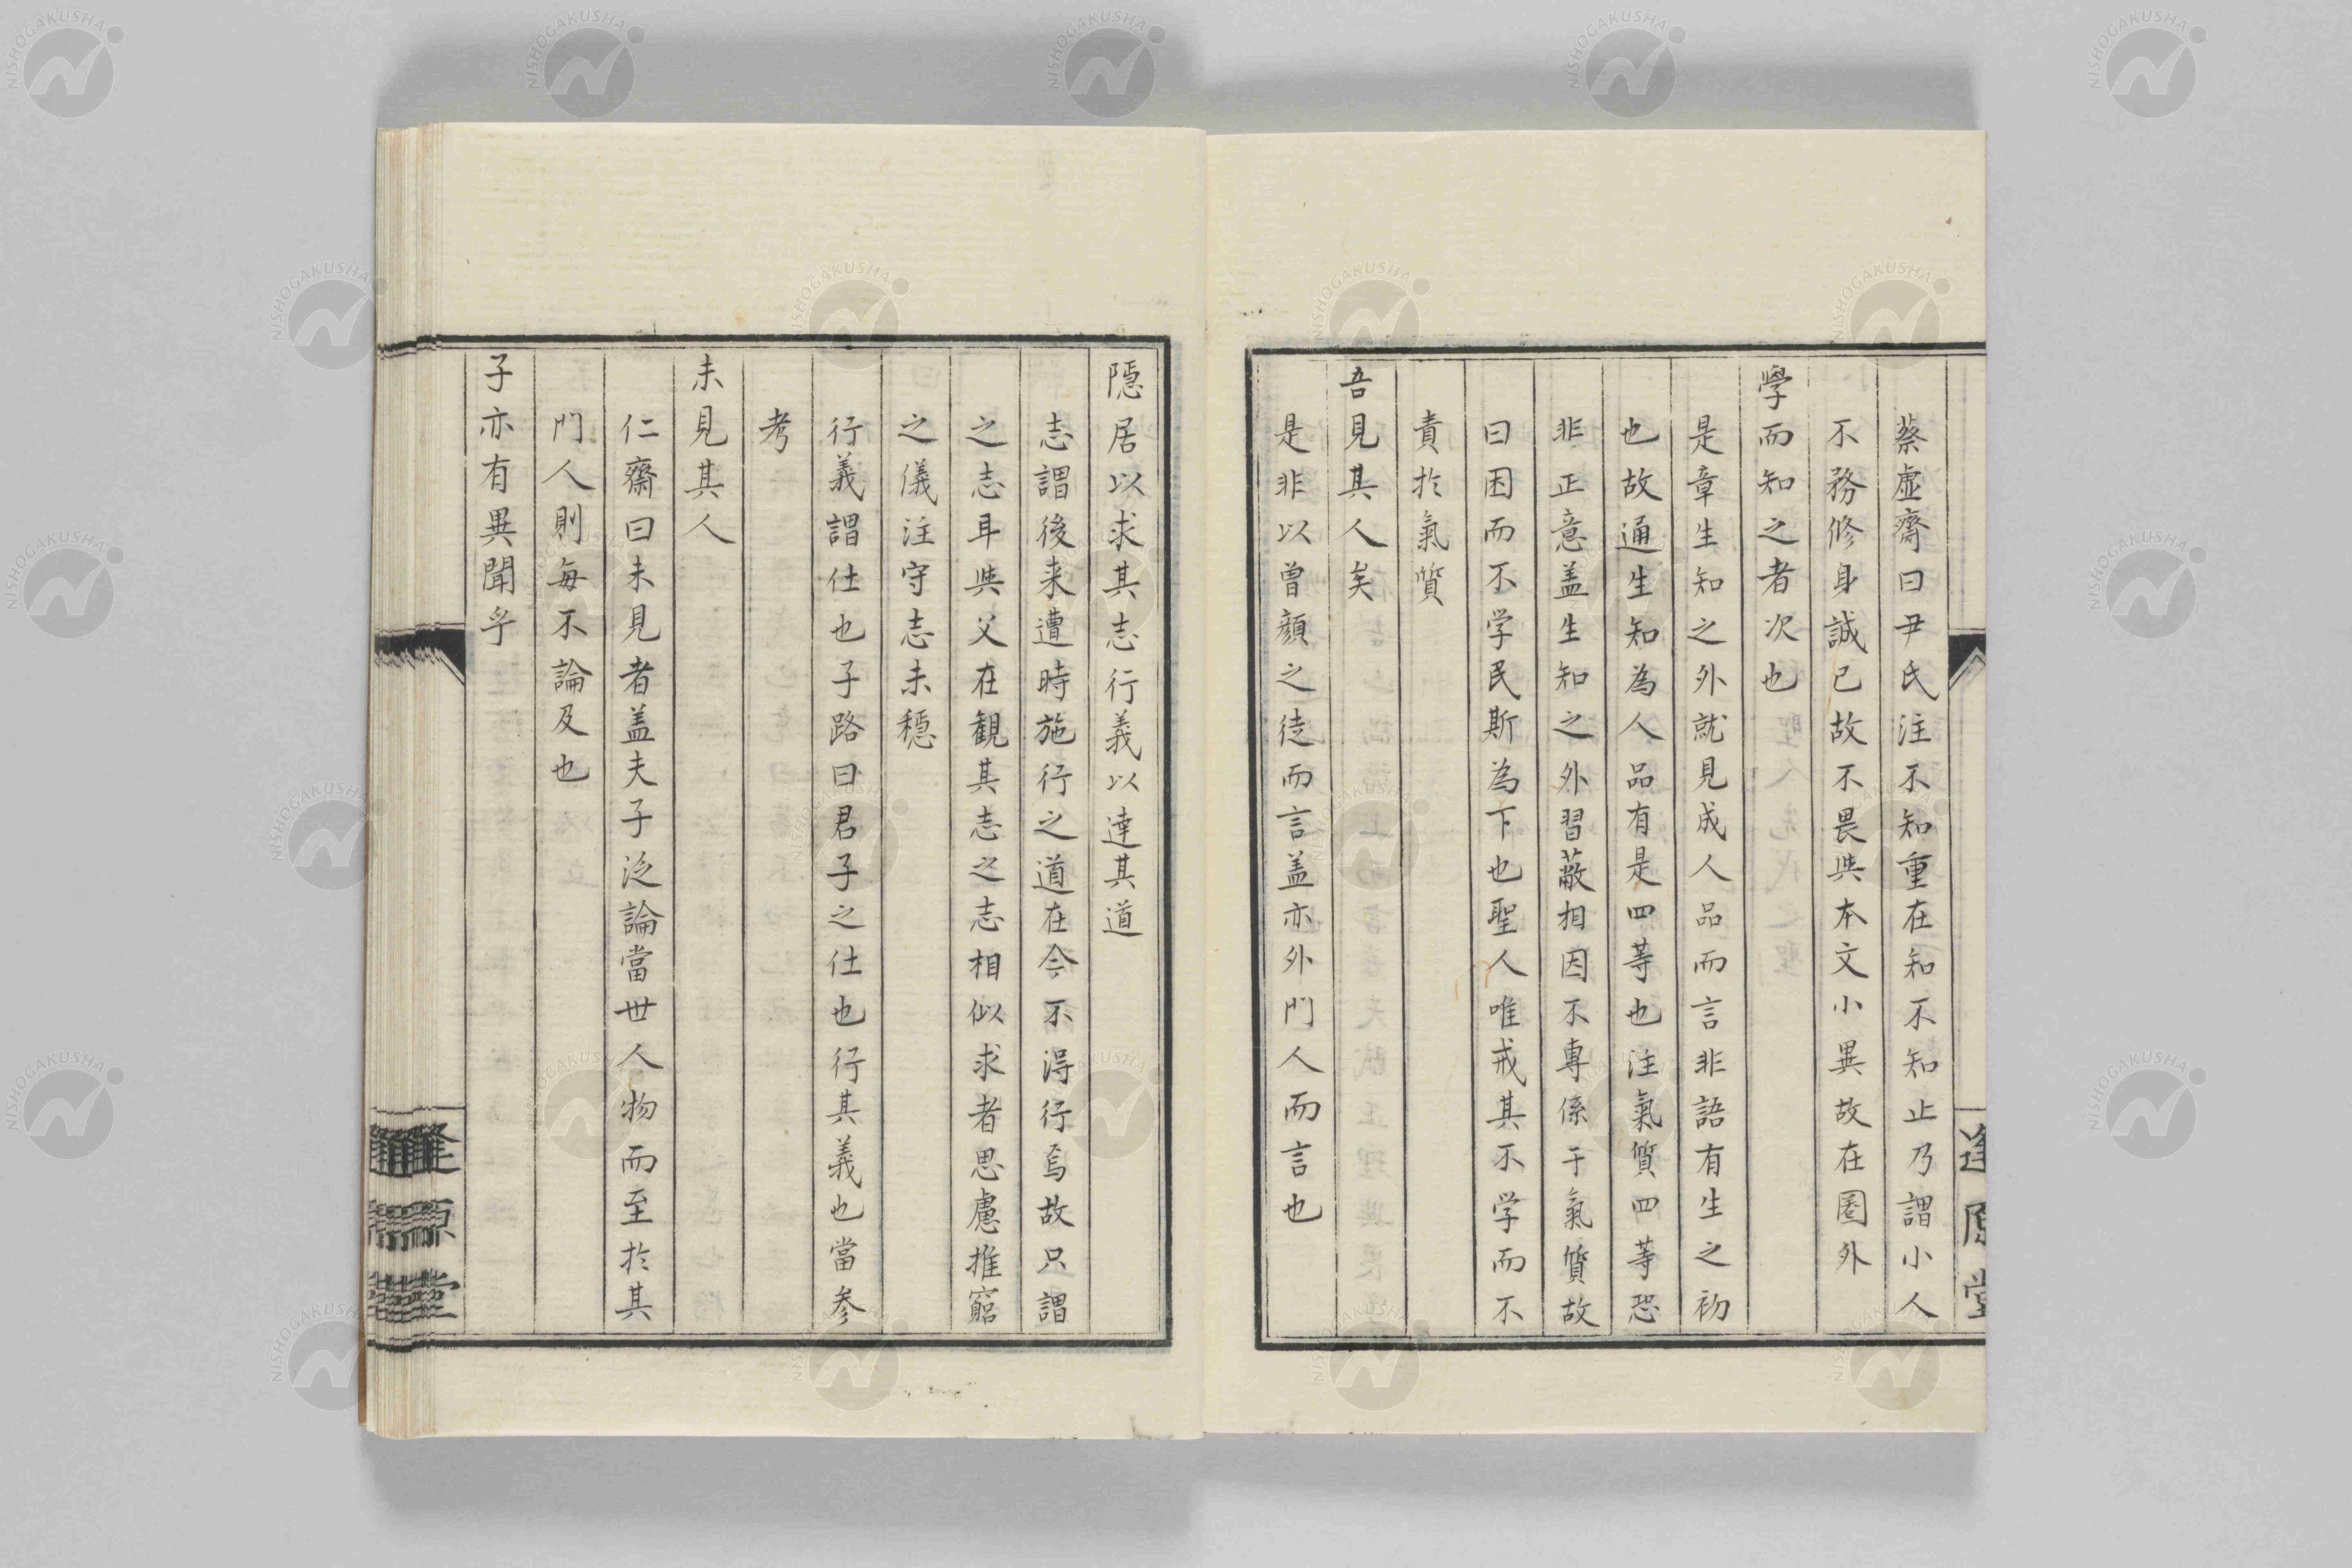 蔡虛齋曰尹氏注不知重在知不知止乃謂小人
不務修身誠己故不畏与本文小異故在圏外
學而知之者次也
是章生知之外就見成人品而言非語有生之初
也故通生知為人品有是四等也注氣質四等恐
非正意盖生知之外習蔽相因不專係于氣質故
曰困而不学民斯為下也聖人唯戒其不学而不
責於氣質
吾見其人矣
是非以曽顔之徒而言盖亦外門人而言也
逢原堂
隠居以求其志行義以達其道
志謂後来遭時施行之道在今不得行焉故只謂
之志耳与父在観其志之志相似求者思慮推窮
之儀注守志未穏
行義謂仕也子路曰君子之仕也行其義也當参
考
未見其人
仁齋曰未見者盖夫子泛論當世人物而至於其
門人則每不論及也
子亦有異聞乎
逢原堂
NISHOGAKUSHA